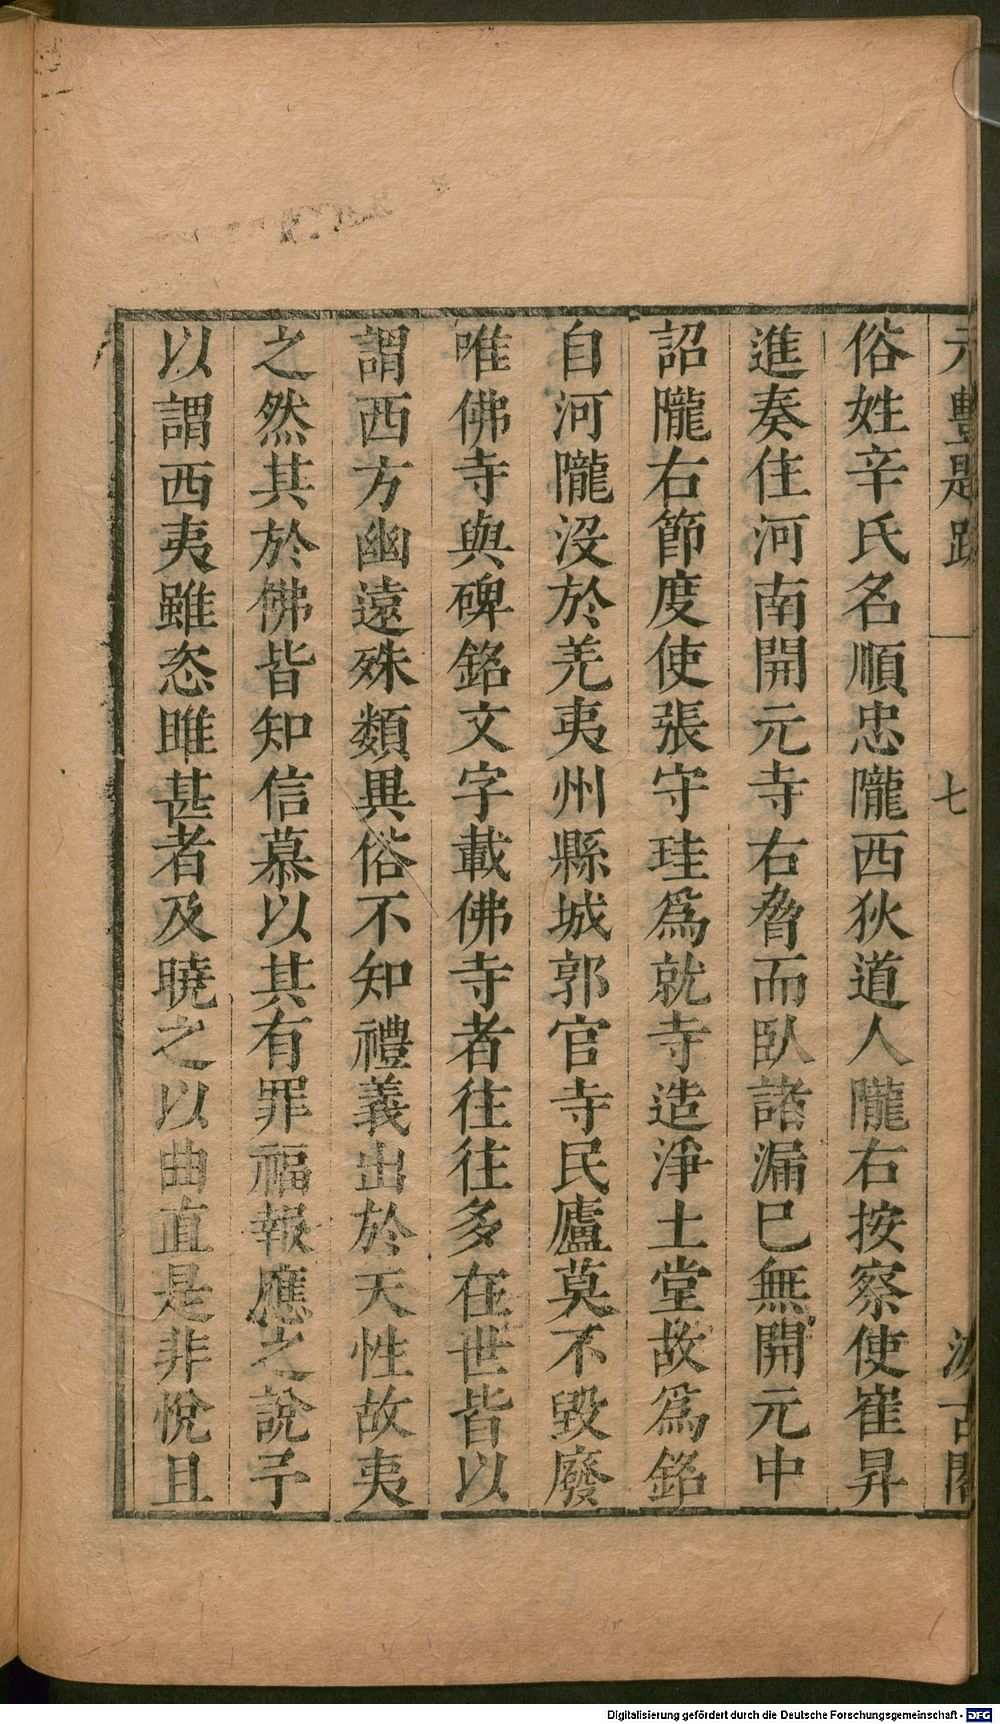 元豐題跋 一 七 汲古閣
俗姓辛氏名順忠隴西狄道人隴右按察使崔昇
進奏住河南開元寺右脅而臥諸漏巳無開元中
詔隴右節度使張守珪爲就寺造淨土堂故爲銘
自河隴沒於羌夷州縣城郭官寺民廬莫不毀廢
唯佛寺與碑銘文字載佛寺者往往多在世皆以
謂西方幽遠殊類異俗不知禮義出於天性故夷
之然其於佛皆知信慕以其有罪福報應之說予
以謂西夷雖恣睢甚者及曉之以曲直是非悅且
Digitalisierung gefördert durch die Deutsche Forschungsgemeinschaft - DFG